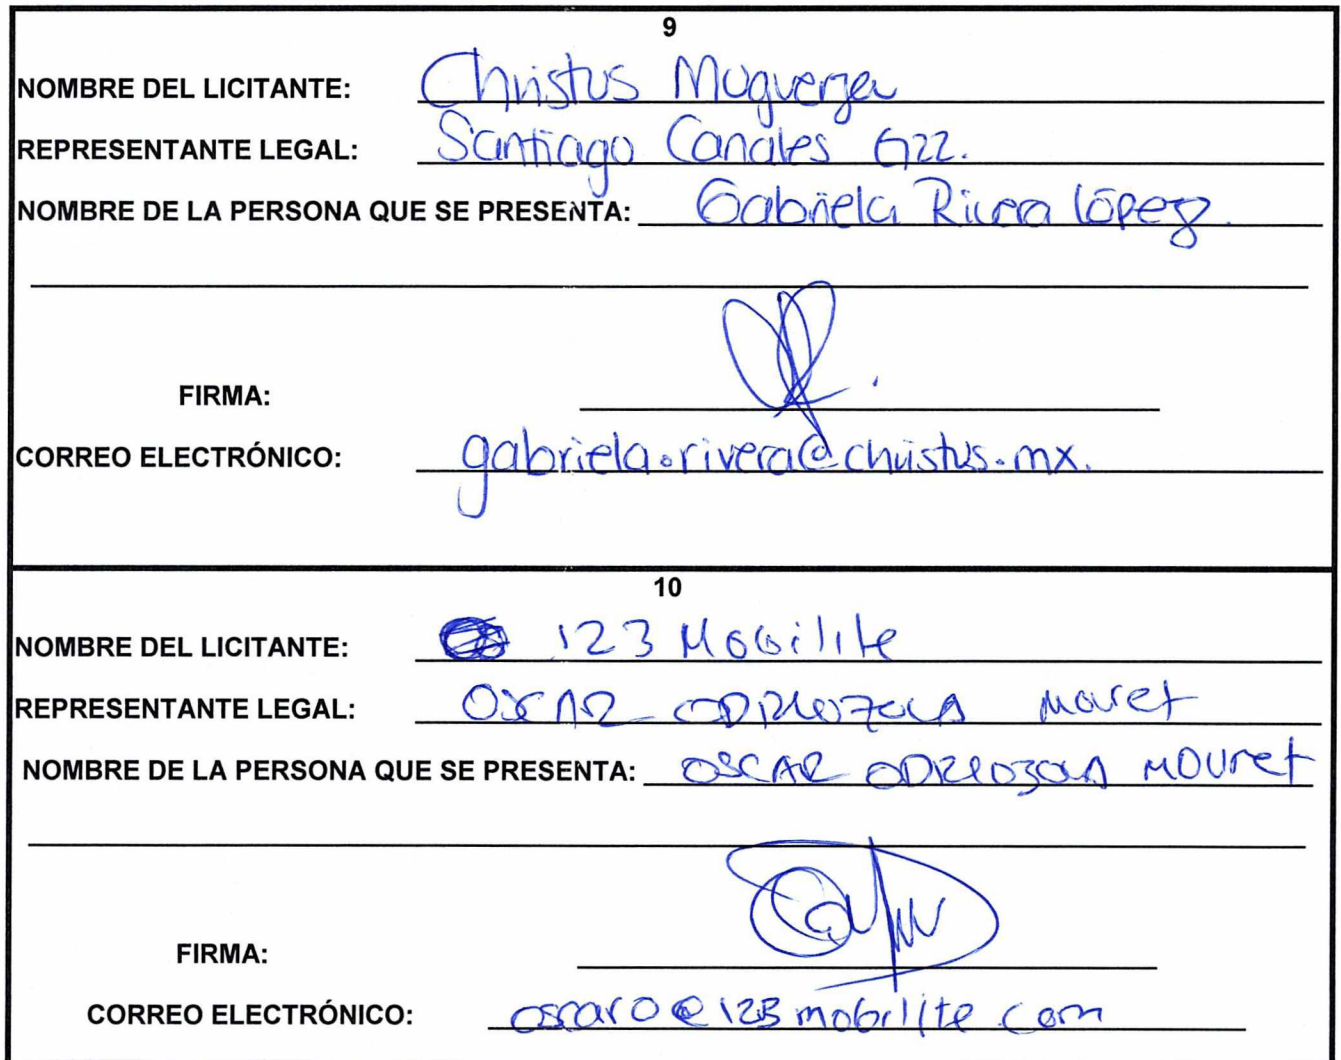 9
NOMBRE DEL LICITANTE: Christus Muguerza
REPRESENTANTE LEGAL: Santiago Canales Gzz.
NOMBRE DE LA PERSONA QUE SE PRESENTA: Gabriela Rivera López.
FIRMA:
CORREO ELECTRÓNICO: gabriela.rivera@christus.mx.
10
NOMBRE DEL LICITANTE: 123 Mobilite
REPRESENTANTE LEGAL: OSCAR ODRIOZOLA Mouret
NOMBRE DE LA PERSONA QUE SE PRESENTA: OSCAR ODRIOZOLA MOUret
FIRMA:
CORREO ELECTRÓNICO: oscaro@123mobilite com